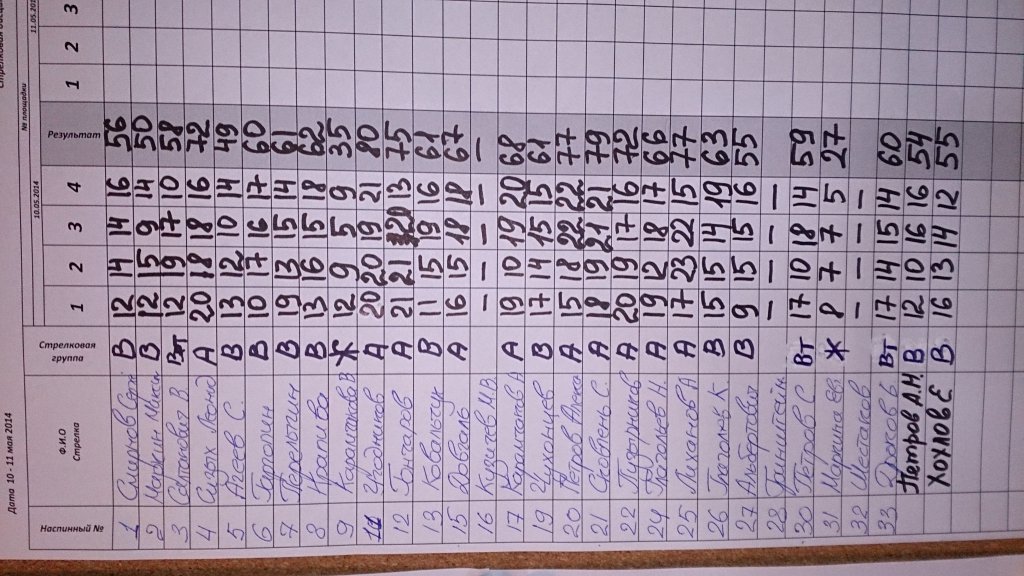 Дата 10 - 11 мая 2014
№ площадки
10.05.2014 11.05.201
Наспинный № Ф.И.О Стрелка Стрелковая группа 1 2 3 4 Результат 1 2 3
1 Смирнов В 12 14 14 16 56
2 В 12 15 9 14 50
3 В. Вт 12 19 17 10 58
4 Леонид А 20 18 18 16 72
5 Агеев С. В 13 12 10 14 49
6 В 10 17 16 17 60
7 Перелыгин В 19 13 15 14 61
8 Крапива В 13 16 15 18 62
9 Харитонова В Ж 12 9 5 9 35
11 А 20 20 19 21 80
12 Гончаров А 21 21 20 13 75
13 Ковальчук В 11 15 19 16 61
15 Довбаль А 16 15 18 18 67
16 — — — — —
17 Харитонов А А 19 10 19 20 68
19 Чухонцев В 17 14 15 15 61
20 Петров А 15 18 22 22 77
21 С. А 18 19 21 21 79
22 А 20 19 17 16 72
24 Н. А 19 12 18 17 66
25 Лиханов А А 17 23 22 15 77
26 К В 15 15 14 19 63
27 В 9 15 15 16 55
28 Гринштейн — — — —
30 Петров С Вт 17 10 18 14 59
31 Маркина Ж 8 7 7 5 27
32 — — — —
33 Вт 17 14 15 14 60
Петров А.М. В 12 10 16 16 54
Хохлов Е В 16 13 14 12 55